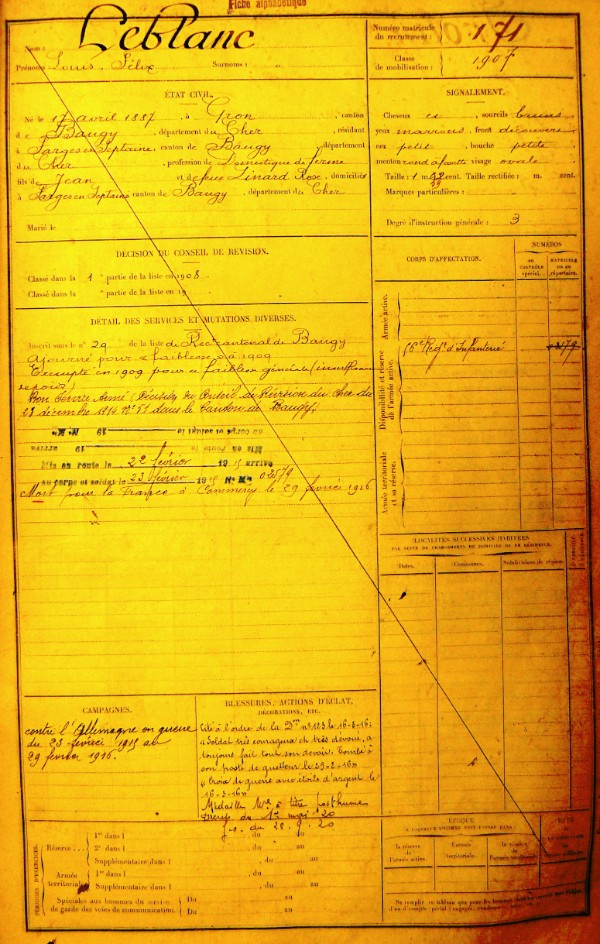 Fiche alphabétique
Nom : Leblanc
Prénoms : Louis, Félix Surnoms : "
Numéro matricule
du recrutement : 171
Classe
de mobilisation : 1907
ÉTAT CIVIL.
Né le 17 avril 1887, à Gron, canton
de Baugy, département du Cher, résidant
à canton de Baugy, département
du Cher, profession de Domestique de ferme
fils de Jean et de feue Linard Rose, domiciliés
à canton de Baugy, département du Cher
Marié le
SIGNALEMENT.
Cheveux et sourcils bruns
yeux marrons, front découvert
nez petit, bouche petite
menton rond à fossette visage ovale
Taille : 1 m. cent. Taille rectifiée : m. cent.
Marques particulières :
Degré d'instruction générale : 3
DÉCISION DU CONSEIL DE RÉVISION.
Classé dans la 1e partie de la liste en 1908
Classé dans la e partie de la liste en 19
CORPS D'AFFECTATION.
NUMÉROS
au
contrôle
spécial.
matricule
ou au
répertoire.
Armée active.
Disponibilité et réserve
de l'armée active.
Armée territoriale
et sa réserve.
DÉTAIL DES SERVICES ET MUTATIONS DIVERSES.
Inscrit sous le n° 29 de la liste de Rect cantonal de Baugy
Ajourné pour « faiblesse » à 1909
Exempté en 1909 pour « faiblesse générale
Bon Service Armé (Décision du Conseil de Révision du Cher du
23 décembre 1914 N° 51 dans le Canton de Baugy)
Mis en route le 22 février 1915 arrivé
au corps et soldat le 23 février 1915 N° Mle 02579
Mort pour la France à le 29 février 1916
d'Infanterie
LOCALITÉS SUCCESSIVES HABITÉES
PAR SUITE DE CHANGEMENTS DE DOMICILE OU DE RÉSIDENCE.
Dates. Communes. Subdivisions de région.
CAMPAGNES.
contre l'Allemagne en guerre
du 23 février 1915 au
29 février 1916.
BLESSURES, ACTIONS D'ÉCLAT,
DÉCORATIONS, ETC.
Cité à l'ordre de la Don n° 123 le 16-3-16 :
« Soldat très courageux et très dévoué, a
toujours fait tout son devoir. Tombé à
son poste de guetteur le 29-2-16 »
« Croix de guerre avec étoile d'argent le
16-3-16 »
Médaille Mre à titre posthume
du 1er mai 20
J.O. du 28.9.20
PÉRIODES D'EXERCICES.
Réserve
1re dans l du au
2e dans l du au
Supplémentaire dans l du au
Armée
territoriale
1re dans l du au
Supplémentaire dans l du au
Spéciales aux hommes du service
de garde des voies de communication.
Du au
Du au
ÉPOQUE
la réserve
de l'armée active.
l'armée
territoriale.
la réserve
de l'armée territoriale.